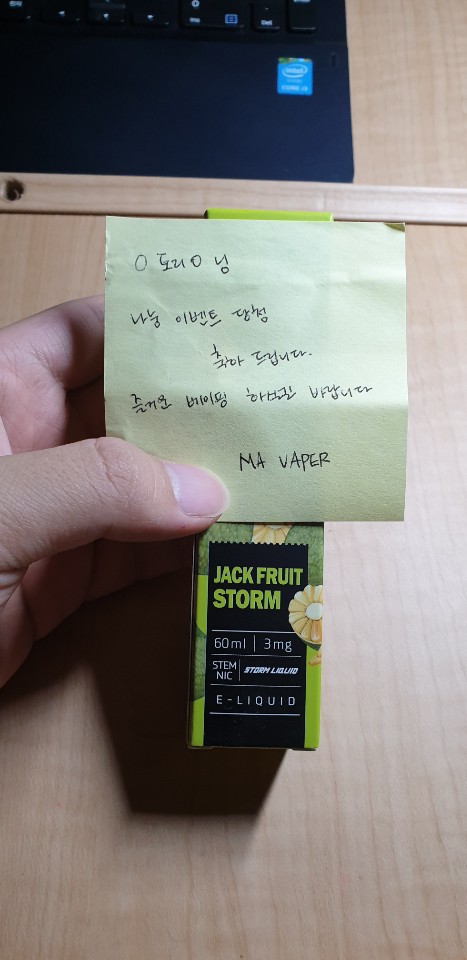 Del
intel
CORE i3
O 토리O 님
나눔 이벤트 당첨
축하 드립니다.
즐거운 베이핑 하시길 바랍니다
MA VAPER
JACK FRUIT
STORM
60ml 3mg
STEM
NIC STORM LIQUID
E-LIQUID